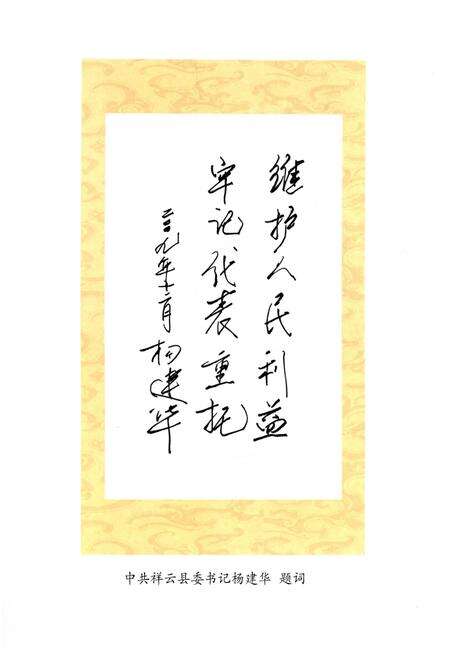 维护人民利益
牢记代表重托
二〇〇九年十二月
杨建华
中共祥云县委书记杨建华 题词